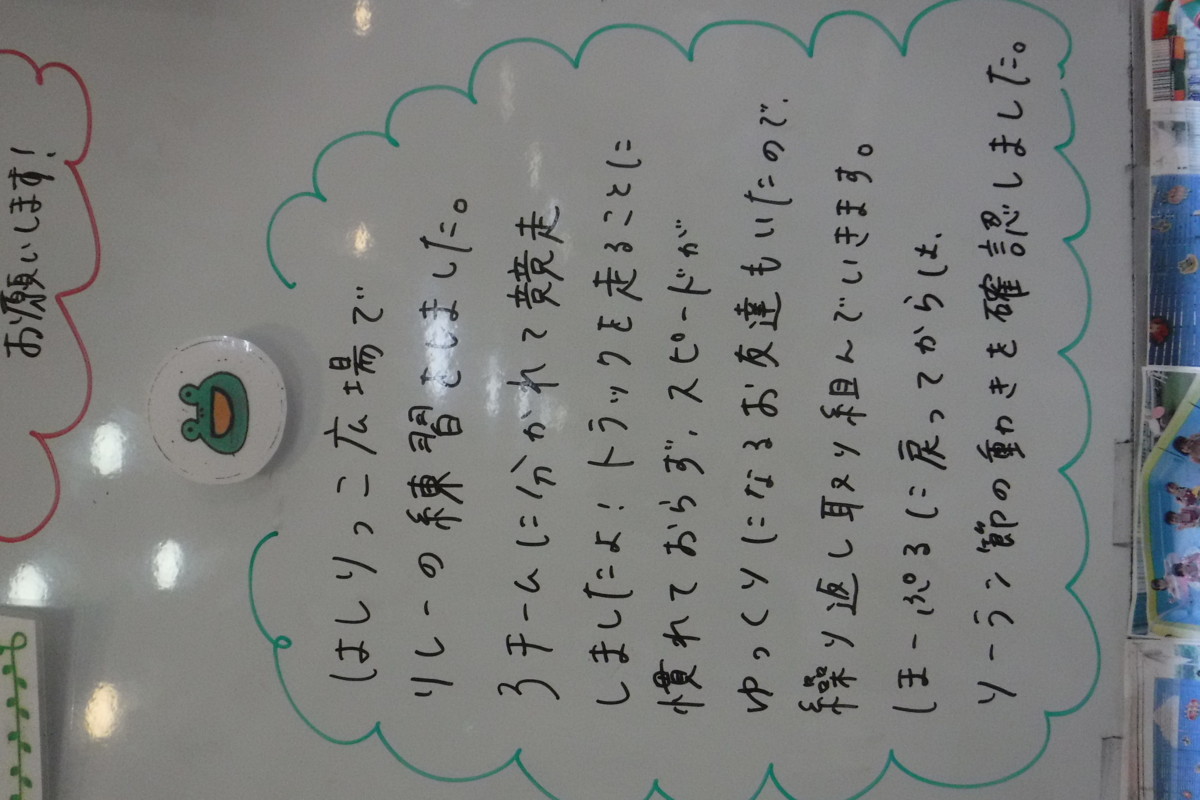 お願いします!
はしりっこ広場で
リレーの練習をしました。
3チームに分かれて競走
しましたよ!トラックを走ることに
慣れておらず、スピードが
ゆっくりになるお友達もいたので、
繰り返し取り組んでいきます。
ほーぷるに戻ってからは、
ソーラン節の動きを確認しました。